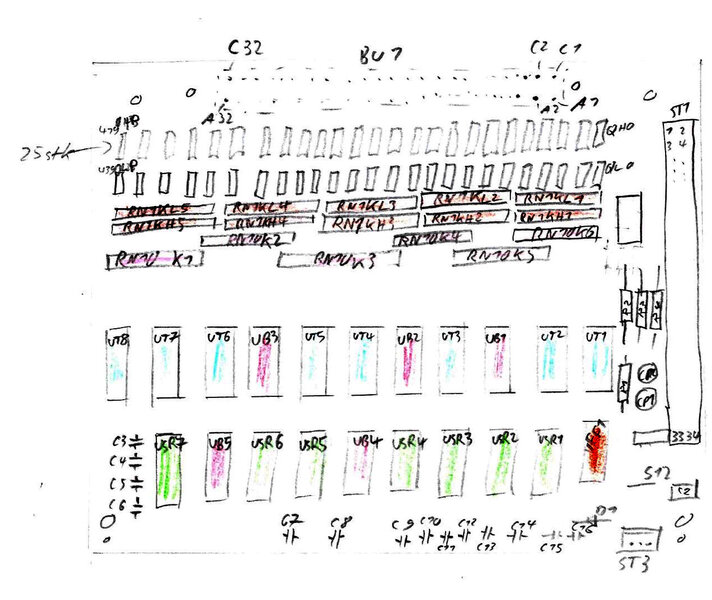 C32 BU1 C2 C1
A32 A2 A1
ST1
1 2
3 4
25stk
QH0
QL0
RN1KL5 RN1KL4 RN1KL3 RN1KL2 RN1KL1
RN1KH5 RN1KH4 RN1KH3 RN1KH2 RN1KH1
RN10K2 RN10K4 RN10K6
RN10K1 RN10K3 RN10K5
UT8 UT7 UT6 UB3 UT5 UT4 UB2 UT3 UB1 UT2 UT1
USR7 UB5 USR6 USR5 UB4 USR4 USR3 USR2 USR1
3334
C3
C4
C5
C6
ST2
C7 C8 C9 C10 C11 C12 C13 C14 C15 C16 D1
ST3